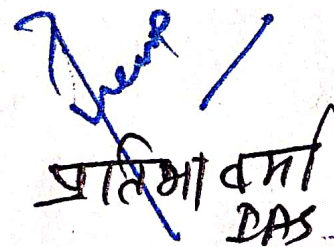 प्रतिभा वर्मा
DAS